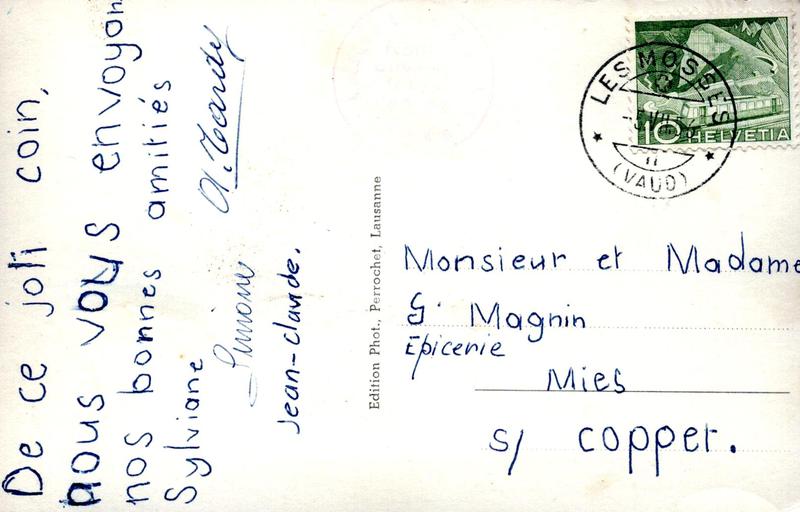 De ce joli coin,
nous vous envoyon
nos bonnes amitiés
Sylviane
A. Tardy
Simone
Jean-claude.
Edition Phot., Perrochet, Lausanne
LES MOSSES
(VAUD)
10 HELVETIA
Monsieur et Madame
G. Magnin
Epicerie
Mies
s/ coppet.